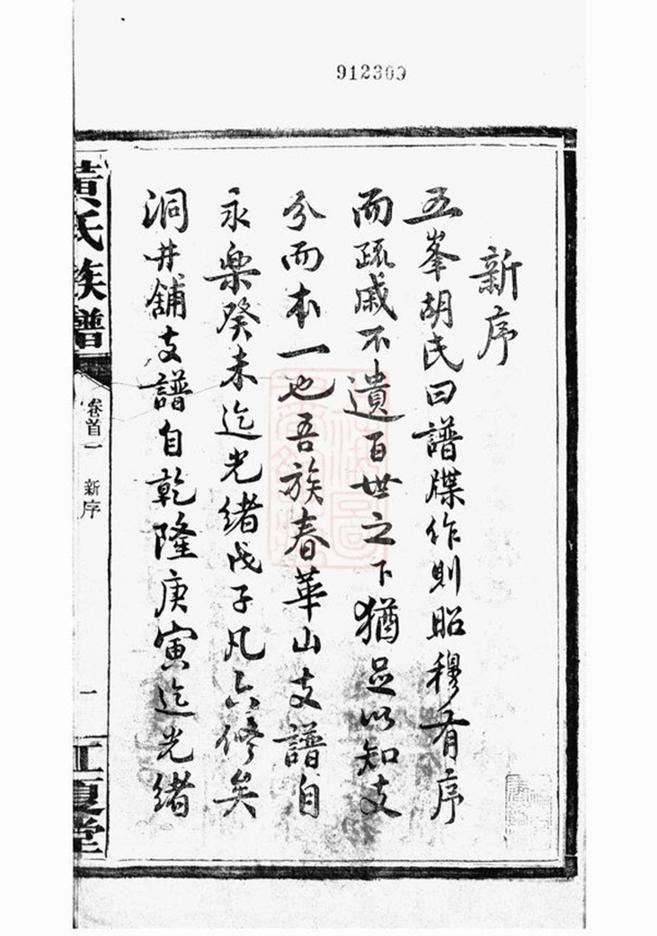 912309
新序
五峯胡氏曰譜牒作則昭穆有序
而疏戚不遺百世之下猶足以知支
分而本一也吾族春華山支譜自
永樂癸未迄光緒戊子凡六修矣
洞井舖支譜自乾隆庚寅迄光緒
黃氏族譜
卷首一 新序
一
江夏堂